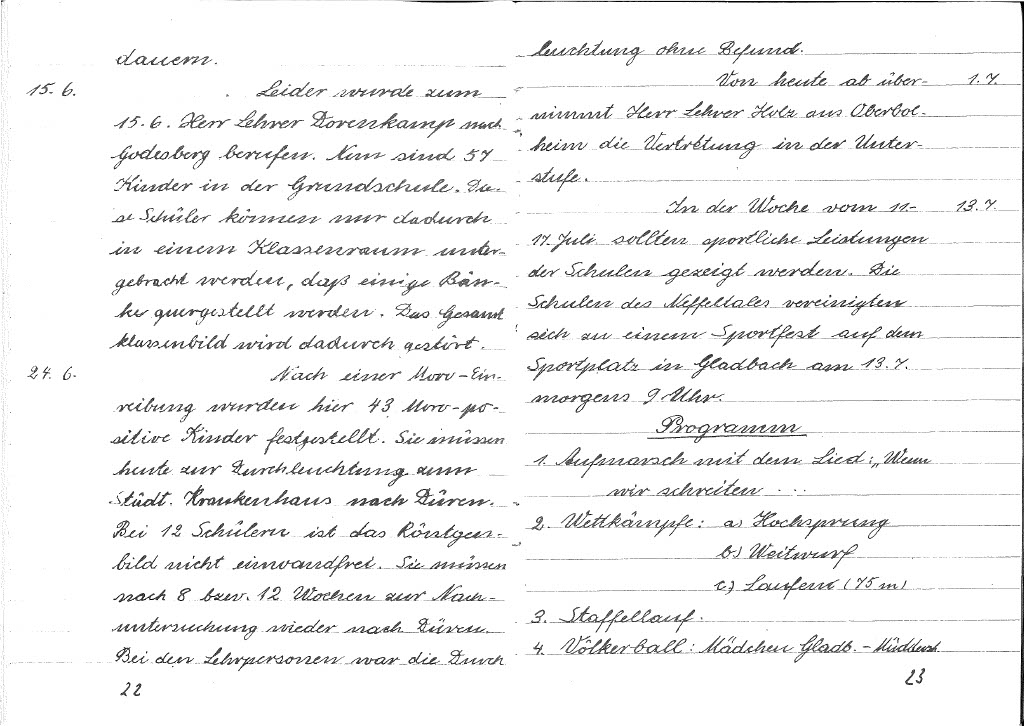 dauern.
15.6. Leider wurde zum
15.6. Herr Lehrer Dorenkamp nach
Godesberg berufen. Nun sind 57
Kinder in der Grundschule. Die-
se Schüler können nur dadurch
in einem Klassenraum unter-
gebracht werden, daß einige Bän-
ke quergestellt werden. Das Gesamt
klassenbild wird dadurch gestört.
24.6. Nach einer Moro-Ein-
reibung wurden hier 43 Moro-po-
sitive Kinder festgestellt. Sie müssen
heute zur Durchleuchtung zum
Städt. Krankenhaus nach Düren.
Bei 12 Schülern ist das Röntgen-
bild nicht einwandfrei. Sie müssen
nach 8 bzw. 12 Wochen zur Nach-
untersuchung wieder nach Düren.
Bei den Lehrpersonen war die Durch
22
leuchtung ohne Befund.
Von heute ab über- 1.7.
nimmt Herr Lehrer Holz aus Oberbol-
heim die Vertretung in der Unter-
stufe.
In der Woche vom 11.- 13.7.
17. Juli sollten sportliche Leistungen
der Schulen gezeigt werden. Die
Schulen des Neffeltales vereinigten
sich zu einem Sportfest auf dem
Sportplatz in Gladbach am 13.7.
morgens 9 Uhr.
Programm
1. Aufmarsch mit dem Lied: „Wenn
wir schreiten ...
2. Wettkämpfe: a) Hochsprung
b) Weitwurf
c) Laufen (75 m)
3. Staffellauf.
4. Völkerball: Mädchen Gladb. -
23